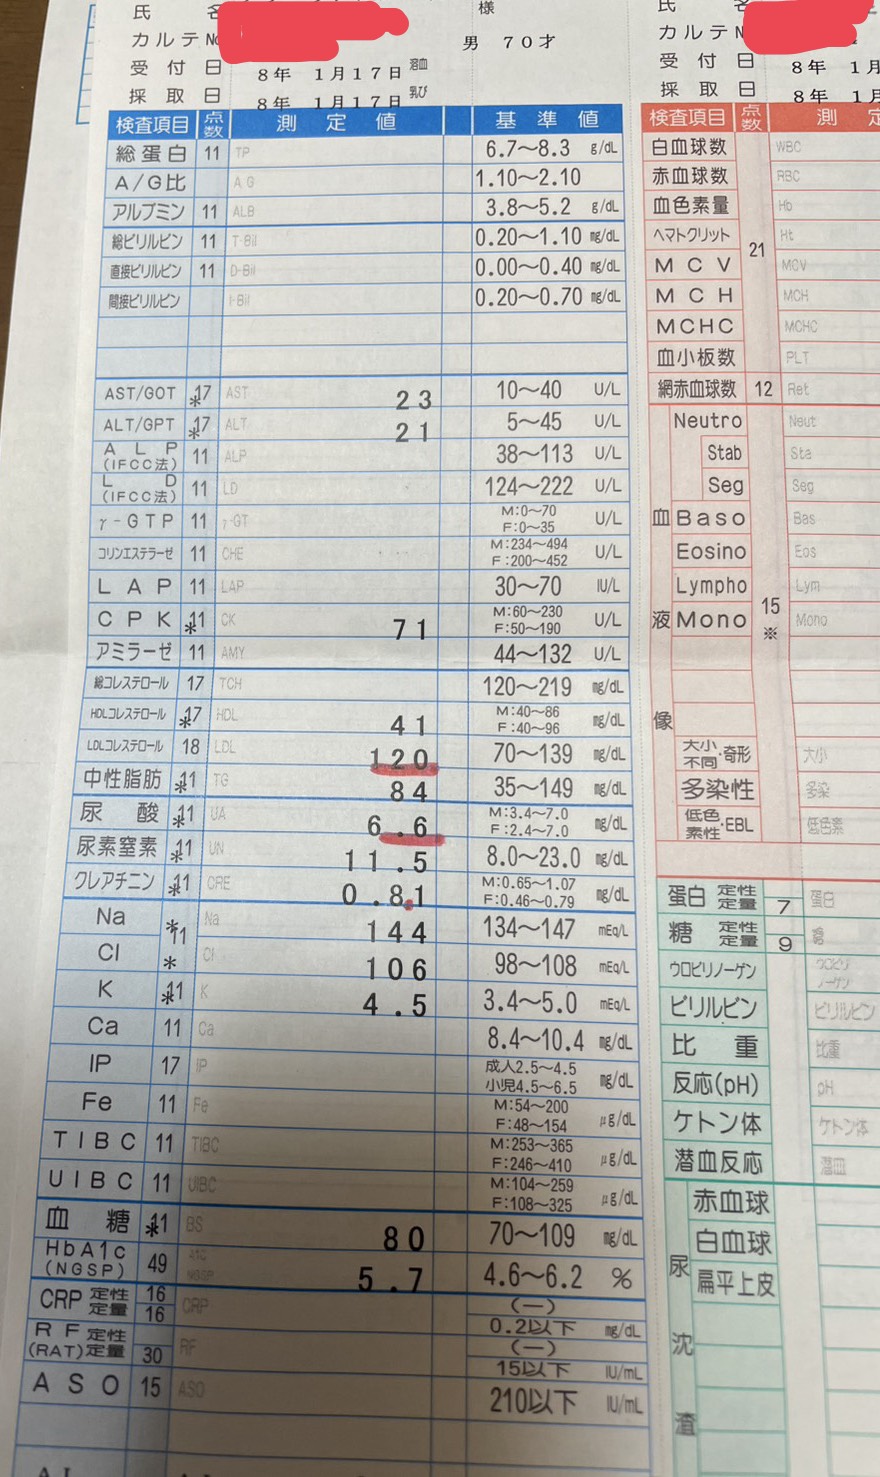 氏 名 様
カルテNo 男 70才
受付日 8年 1月17日 溶血
採取日 8年 1月17日 乳び
検査項目 点数 測定値 基準値
総蛋白 11 TP 6.7～8.3 g/dL
A/G比 A G 1.10～2.10
アルブミン 11 ALB 3.8～5.2 g/dL
総ビリルビン 11 T-Bil 0.20～1.10 mg/dL
直接ビリルビン 11 D-Bil 0.00～0.40 mg/dL
間接ビリルビン I-Bil 0.20～0.70 mg/dL
AST/GOT *17 AST 23 10～40 U/L
ALT/GPT *17 ALT 21 5～45 U/L
ALP (IFCC法) 11 ALP 38～113 U/L
LD (IFCC法) 11 LD 124～222 U/L
γ-GTP 11 γ-GT M:0～70 F:0～35 U/L
コリンエステラーゼ 11 CHE M:234～494 F:200～452 U/L
LAP 11 LAP 30～70 IU/L
CPK *11 CK 71 M:60～230 F:50～190 U/L
アミラーゼ 11 AMY 44～132 U/L
総コレステロール 17 TCH 120～219 mg/dL
HDLコレステロール *17 HDL 41 M:40～86 F:40～96 mg/dL
LDLコレステロール 18 LDL 120 70～139 mg/dL
中性脂肪 *11 TG 84 35～149 mg/dL
尿酸 *11 UA 6.6 M:3.4～7.0 F:2.4～7.0 mg/dL
尿素窒素 *11 UN 11.5 8.0～23.0 mg/dL
クレアチニン *11 CRE 0.81 M:0.65～1.07 F:0.46～0.79 mg/dL
Na * 11 Na 144 134～147 mEq/L
Cl * Cl 106 98～108 mEq/L
K *11 K 4.5 3.4～5.0 mEq/L
Ca 11 Ca 8.4～10.4 mg/dL
IP 17 IP 成人2.5～4.5 小児4.5～6.5 mg/dL
Fe 11 Fe M:54～200 F:48～154 μg/dL
TIBC 11 TIBC M:253～365 F:246～410 μg/dL
UIBC 11 UIBC M:104～259 F:108～325 μg/dL
血糖 *11 BS 80 70～109 mg/dL
HbA1c (NGSP) 49 A1C NGSP 5.7 4.6～6.2 %
CRP 定性 定量 16 16 CRP (－) 0.2以下 mg/dL
RF 定性 (RAT)定量 30 RF (－) 15以下 IU/mL
ASO 15 ASO 210以下 IU/mL
氏 名
カルテN
受付日 8年 1月
採取日 8年 1月
検査項目 点数 測 定
白血球数 21 WBC
赤血球数 RBC
血色素量 Hb
ヘマトクリット Ht
MCV MCV
MCH MCH
MCHC MCHC
血小板数 PLT
網赤血球数 12 Ret
血液像 15 ※
Neutro Neut
Stab Sta
Seg Seg
Baso Bas
Eosino Eos
Lympho Lym
Mono Mono
大小不同・奇形 大小
多染性 多染
低色素性・EBL 低色素
蛋白 定性 定量 7 蛋白
糖 定性 定量 9 糖
ウロビリノーゲン ウロビリノーゲン
ビリルビン ビリルビン
比重 比重
反応(pH) pH
ケトン体 ケトン体
潜血反応 潜血
尿沈渣
赤血球
白血球
扁平上皮